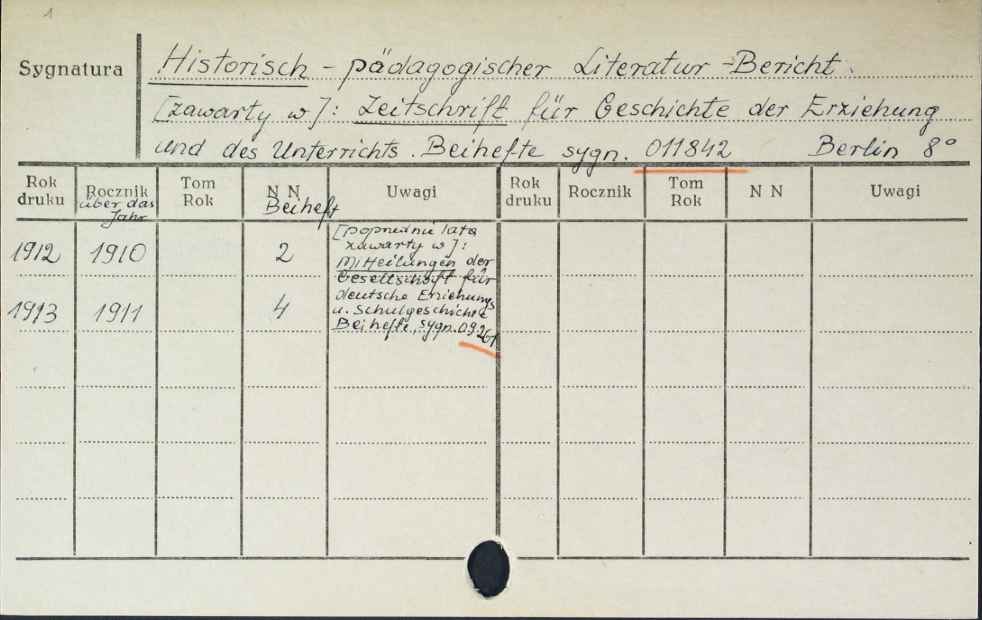 1
Sygnatura
Historisch - pädagogischer Literatur - Bericht
[zawarty w]: Zeitschrift für Geschichte der Erziehung
und des Unterrichts. Beihefte sygn. 011842 Berlin 8°
Rok druku Rocznik über das Jahr Tom Rok N N Beiheft Uwagi Rok druku Rocznik Tom Rok N N Uwagi
1912 1910 2
1913 1911 4
[poprzednie lata
zawarty w]:
Mitteilungen der
Gesellschaft für
deutsche Erziehungs
u. Schulgeschichte
Beihefte, sygn. 09261